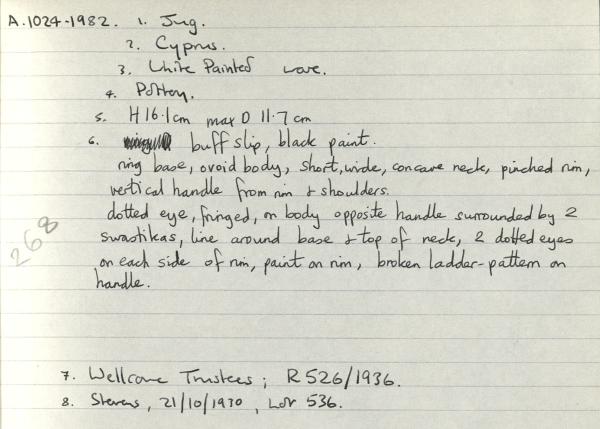 A.1024-1982. 1. Jug.
2. Cyprus.
3. White Painted ware.
4. Pottery.
5. H 16.1cm max D 11.7cm
6. buff slip, black paint.
ring base, ovoid body, short, wide, concave neck, pinched rim,
vertical handle from rim & shoulders.
dotted eye, fringed, on body opposite handle surrounded by 2
swastikas, line around base & top of neck, 2 dotted eyes
on each side of rim, paint on rim, broken ladder-pattern on
handle.
268
7. Wellcome Trustees; R526/1936.
8. Stevens, 21/10/1930, Lot 536.